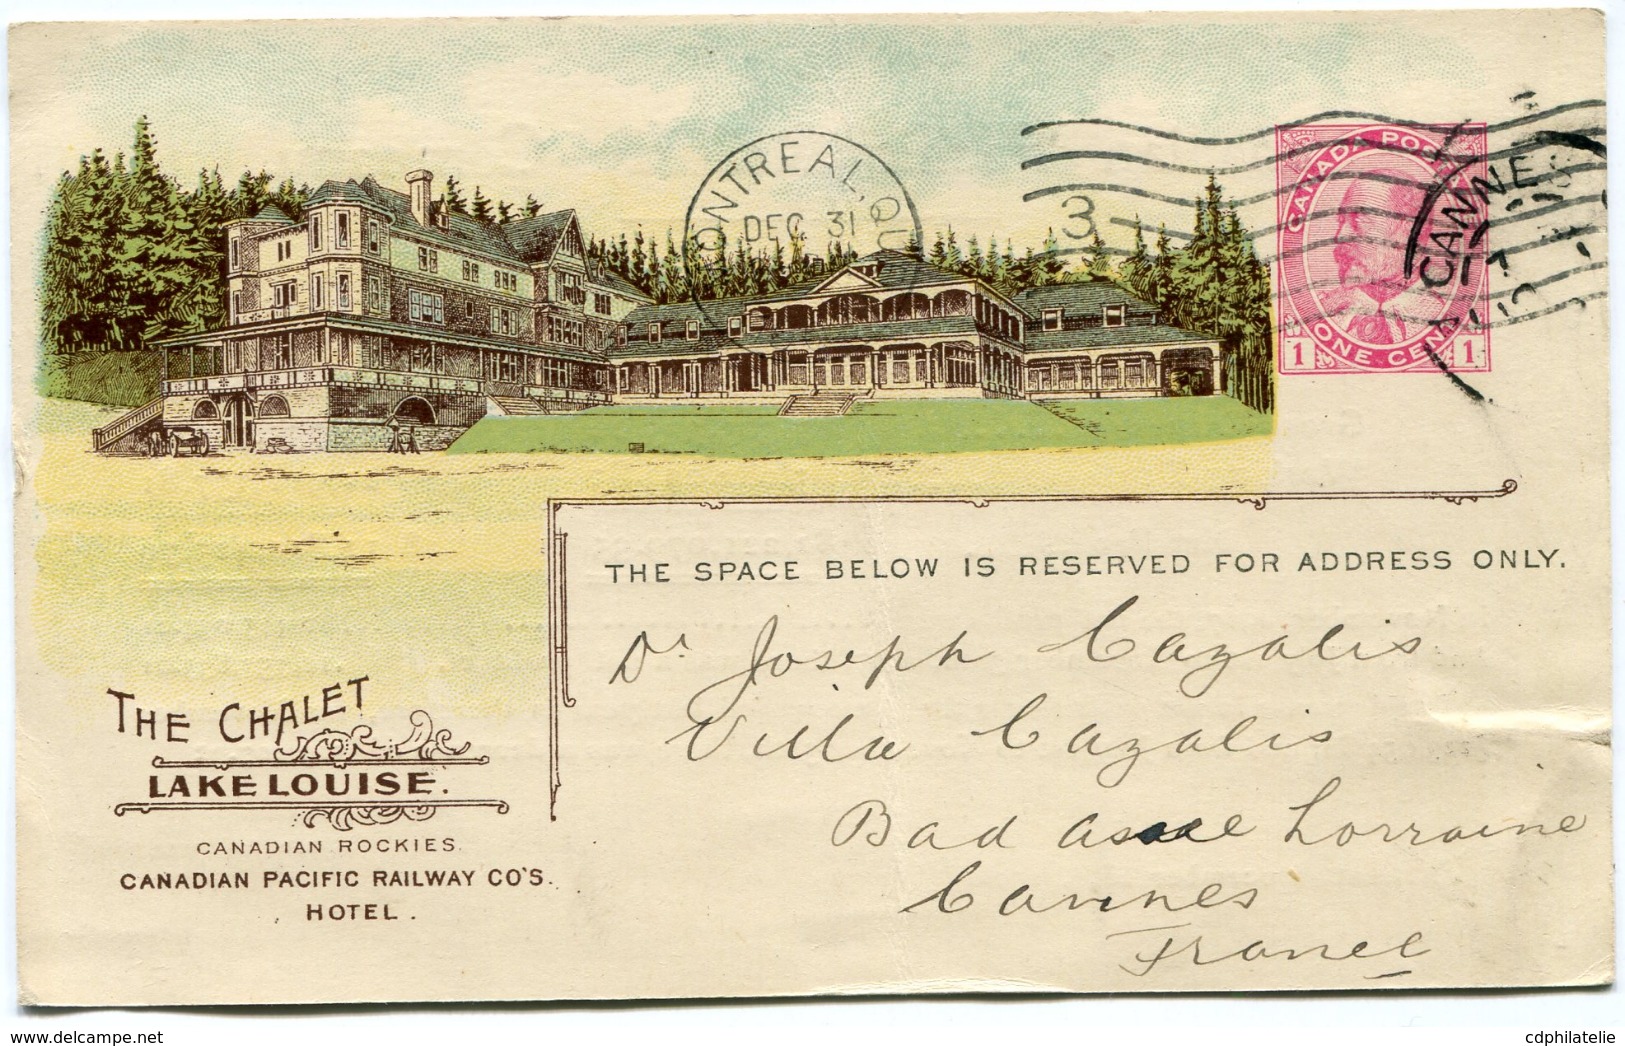 MONTREAL, QU
DEC 31
3
CANADA POSTA
ONE CENT
1 1
CANNES
17
THE SPACE BELOW IS RESERVED FOR ADDRESS ONLY.
Dr Joseph Cazalis
Villa Cazalis
Bad Lorraine
Cannes
France
THE CHALET
LAKE LOUISE.
CANADIAN ROCKIES.
CANADIAN PACIFIC RAILWAY CO'S.
HOTEL.
www.delcampe.net
cdphilatelie